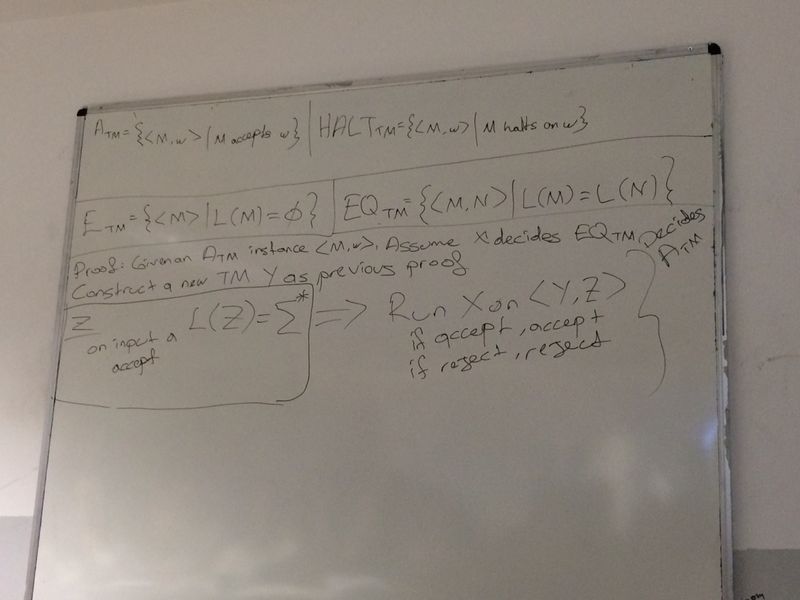 A_TM = {<M,w> | M accepts w} | HALT_TM = {<M,w> | M halts on w}
E_TM = {<M> | L(M) = ∅} | EQ_TM = {<M,N> | L(M) = L(N)}
Proof: Given an A_TM instance <M,w>, Assume X decides EQ_TM
Construct a new TM Y as previous proof
Z
on input a
accept
L(Z) = Σ*
=> Run X on <Y,Z>
if accept, accept
if reject, reject
Decides
A_TM